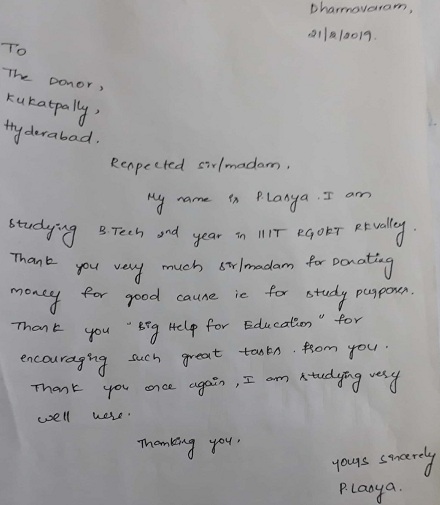 Dharmavaram,
21/8/2019.
To
The Donor,
Kukatpally,
Hyderabad.
Respected sir/madam.
My name is P.Lasya. I am
studying B.Tech 2nd year in IIIT RGUKT RKvalley.
Thank you very much sir/madam for Donating
money for good cause ie for study purposes.
Thank you "Big Help for Education" for
encouraging such great tasks. from you.
Thank you once again, I am studying very
well here.
Thanking you.
yours sincerely
P.Lasya.